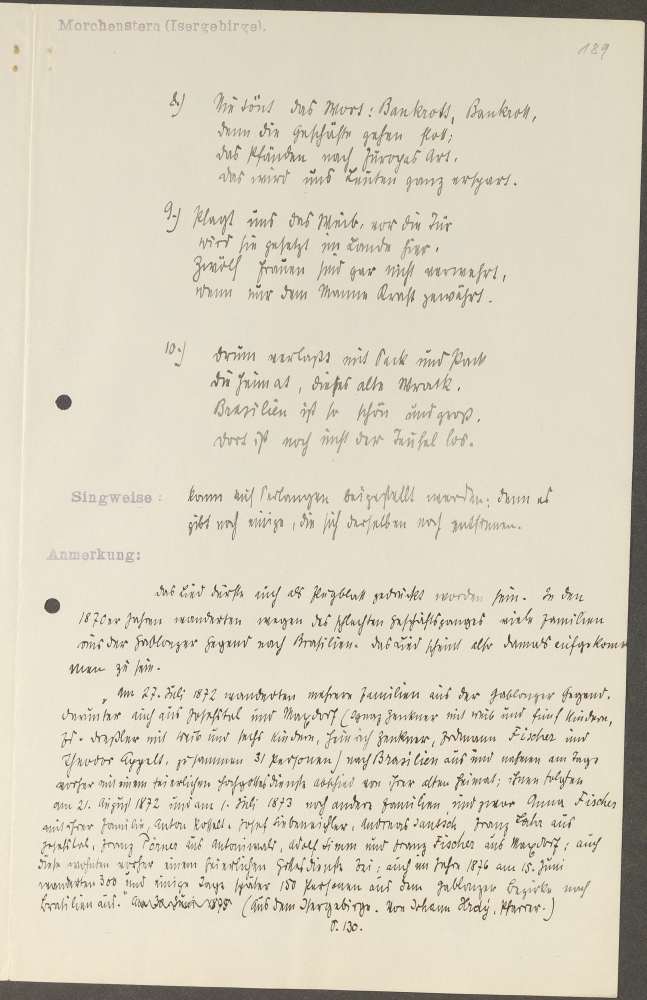 Morchenstern (Isergebirge).
189
8.) Nie tönt das Wort: Bankrott, Bankrott,
denn die Geschäfte gehen flott;
das Pfänden nach Europas Art,
das wird uns Leuten ganz erspart.
9.) Plagt uns das Weib, vor die Tür
wird sie gesetzt im Lande hier.
Zwölf Frauen sind gar nicht verwehrt,
wenn nur dem Manne Kraft gewährt.
10.) Drum verlaßt mit Sack und Pack
die Heimat, dieses alte Wrack.
Brasilien ist so schön und groß,
dort ist noch nicht der Teufel los.
Singweise: kann auf Verlangen beigestellt werden; denn es
gibt noch einige, die sich derselben noch entsinnen.
Anmerkung:
Das Lied dürfte auch als Flugblatt gedruckt worden sein. In den
1870er Jahren wanderten wegen des schlechten Geschäftsganges viele Familien
aus der Gablonzer Gegend nach Brasilien. Das Lied scheint also damals aufgekom-
men zu sein.
"Am 27. Juli 1872 wanderten mehrere Familien aus der Gablonzer Gegend,
darunter auch aus Josefstal und Maxdorf (Ignaz Zenkner mit Weib und fünf Kindern,
Jos. Dreßler mit Weib und sechs Kindern, Heinrich Zenkner, Erdmann Fischer und
Theodor Appelt, zusammen 31 Personen) nach Brasilien aus und nahmen am Tage
vorher mit einem feierlichen Hochgottesdienste Abschied von ihrer alten Heimat; ihnen folgten
am 21. August 1872 und am 1. Juli 1873 noch andere Familien und zwar Anna Fischer
mit ihrer Familie, Anton Posselt, Josef Liebeneichler, Andreas Jantsch, Franz Lahr aus
Josefstal, Franz Pörner aus Antoniwald, Adolf Simm und Franz Fischer aus Maxdorf; auch
diese wohnten vorher einem feierlichen Gottesdienste bei; auch im Jahre 1876 am 15. Juni
wanderten 300 und einige Tage später 150 Personen aus dem Gablonzer Bezirke nach
Brasilien aus." (Aus dem Isergebirge. Von Johann Hray, Pfarrer.)
S. 130.